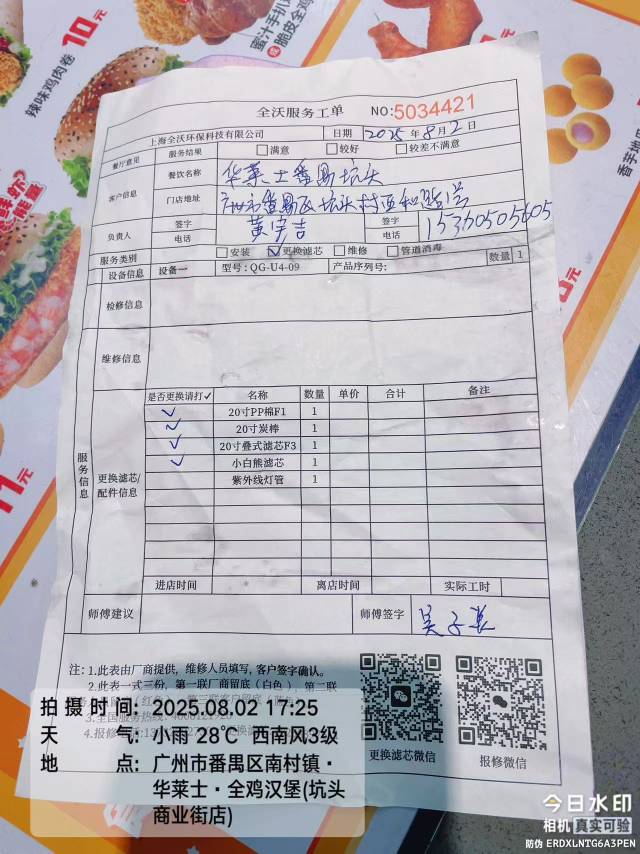 10元
辣味鸡肉卷
蜜汁手扒
脆皮全鸡
香芋丸
11元
0元
全沃服务工单
NO:5034421
上海全沃环保科技有限公司 日期 2025年8月2日
餐厅意见 服务结果 满意 较好 较差不满意
客户信息 餐饮名称 华莱士番禺坑头
门店地址 广州市番禺区坑头村
负责人 签字 签字
电话 电话 15360505605
服务类别 安装 ✓更换滤芯 维修 管道消毒
设备信息 设备一 型号:QG-U4-09 产品序列号: 数量 1
检修信息
维修信息
服务信息
更换滤芯/配件信息
是否更换请打✓ 名称 数量 单价 合计 备注
✓ 20寸PP棉F1 1
✓ 20寸炭棒 1
✓ 20寸叠式滤芯F3 1
✓ 小白熊滤芯 1
紫外线灯管 1
进店时间 离店时间 实际工时
师傅建议 师傅签字
注: 1.此表由厂商提供,维修人员填写,客户签字确认。
2.此表一式三份,第一联厂商留底(白色)、第二联
更换滤芯微信
报修微信
拍摄时间: 2025.08.02 17:25
天气: 小雨 28℃ 西南风3级
地点: 广州市番禺区南村镇·
华莱士·全鸡汉堡(坑头
商业街店)
今日水印
相机 真实可验
防伪 ERDXLNTG6A3PEN